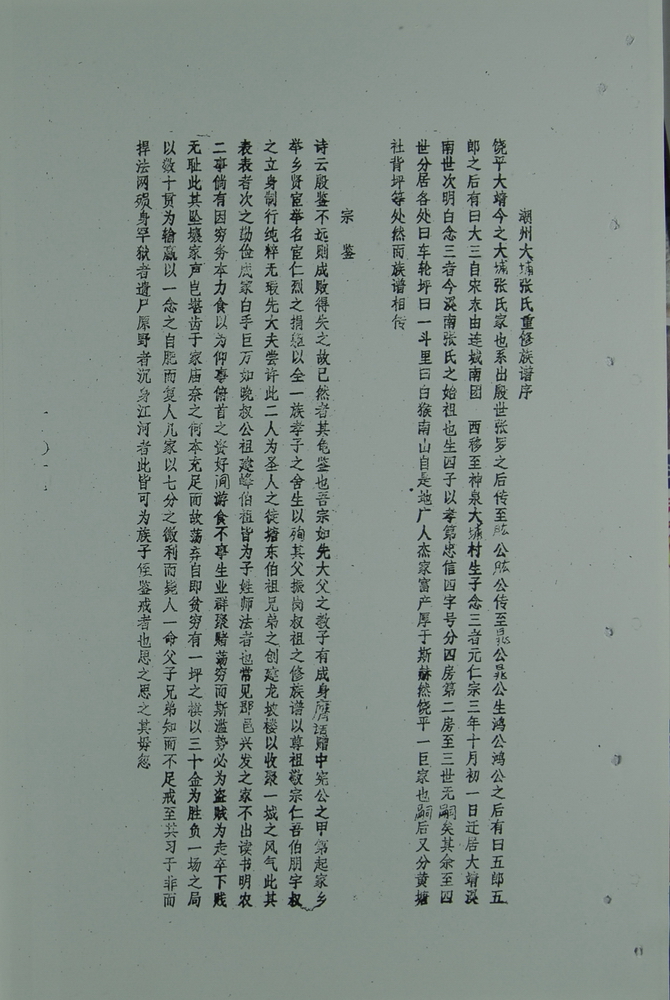 潮州大埔张氏重修族谱序
饶平大靖今之大埔张氏家也系出殷世张罗之后传至肱公肱公传至晁公晁公生鸿公鸿公之后有曰五郎五
郎之后有曰大三自宋末由连城南团 西移至神泉大埔村生子念三者元仁宗三年十月初一日迁居大靖溪
南世次明白念三者今溪南张氏之始祖也生四子以孝第忠信四字号分四房第二房至三世无嗣矣其余至四
世分居各处曰车轮坪曰一斗里曰白猴南山自是地广人杰家富产厚于斯赫然饶平一巨家也嗣后又分黄塘
社背坪等处然而族谱相传
宗鉴
诗云殷鉴不远则成败得失之故已然者其龟鉴也吾宗如先大父之教子有成身膺诰赠中宪公之甲第起家乡
举乡贤宦举名宦仁烈之捐躯以全一族孝子之舍生以殉其父振岗叔祖之修族谱以尊祖敬宗仁吾伯朋字叔
之立身制行纯粹无瑕先大夫尝许此二人为圣人之徒塘东伯祖兄弟之创建龙坡楼以收聚一城之风气此其
表表者次之勤俭成家白手巨万如晚叔公祖建峰伯祖皆为子姓师法者也常见郡邑兴发之家不出读书明农
二事倘有因穷务本力食以为仰事俯首之资好闲游食不事生业群聚赌荡穷而斯滥势必为盗贼为走卒下贱
无耻此其坠壤家声岂堪齿于家庙奈之何本充足而故荡弃自即贫穷有一坪之棋以三十金为胜负一场之局
以数十贯为输赢以一念之自肥而复人几家以七分之微利而毙人一命父子兄弟知而不足戒至其习于非而
捍法网殒身罕狱者遗尸原野者沉身江河者此皆可为族子侄鉴戒者也思之思之其毋忽